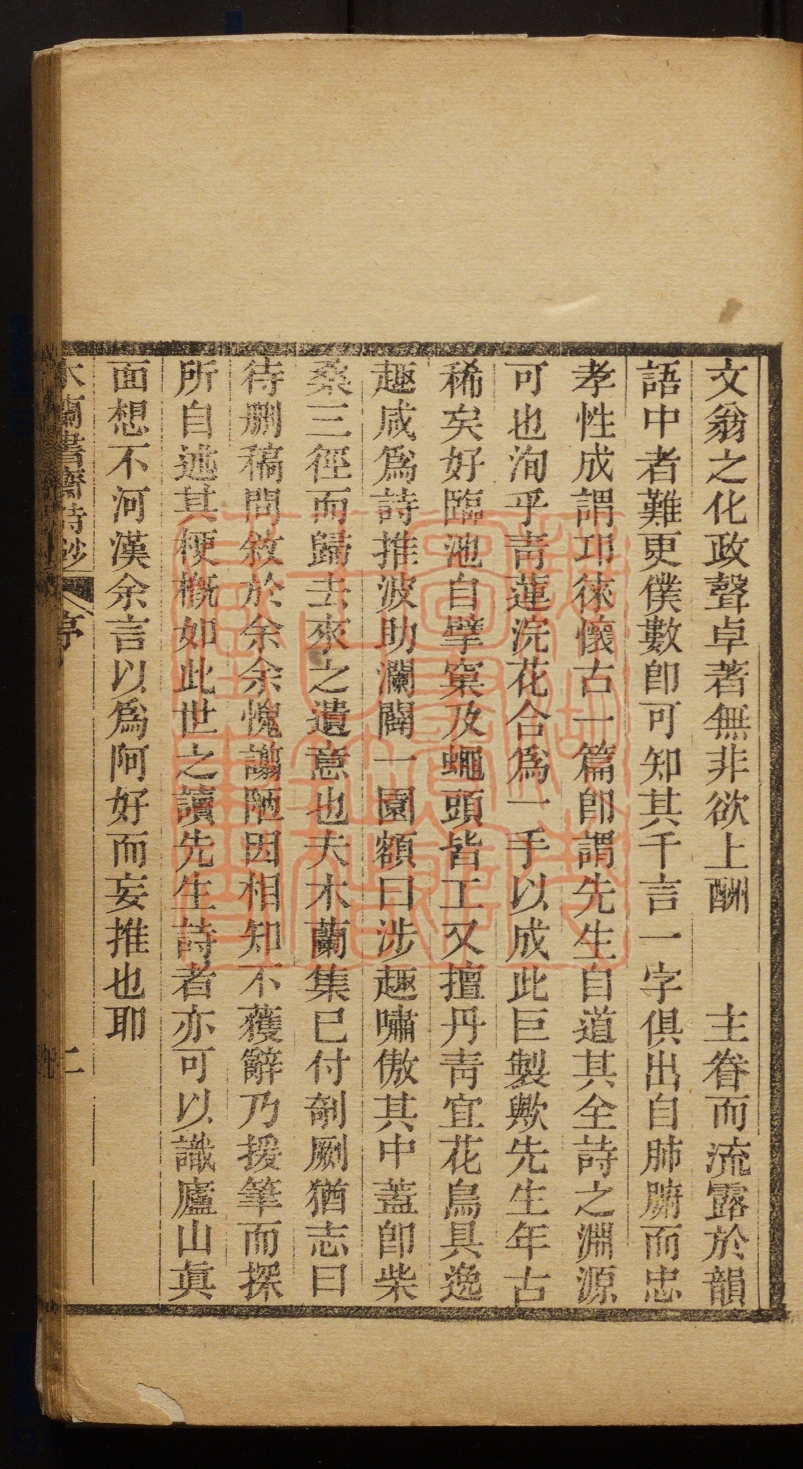 文翁之化政聲卓著無非欲上酬　主眷而流露於韻
語中者難更僕數卽可知其千言一字俱出自肺腑而忠
孝性成謂邛徠懷古一篇卽謂先生自道其全詩之淵源
可也洵乎靑蓮浣花合爲一手以成此巨製歟先生年古
稀矣好臨池自擘窠及蠅頭皆工又擅丹靑宜花鳥具逸
趣咸爲詩推波助瀾闢一園額曰涉趣嘯傲其中蓋卽柴
桑三徑而歸去來之遺意也夫木蘭集已付剞劂猶志曰
待删稿問敘於余余愧謭陋因相知不獲辭乃援筆而探
所自述其梗概如此世之讀先生詩者亦可以識廬山眞
面想不河漢余言以爲阿好而妄推也耶
木蘭書齋詩鈔　序　二